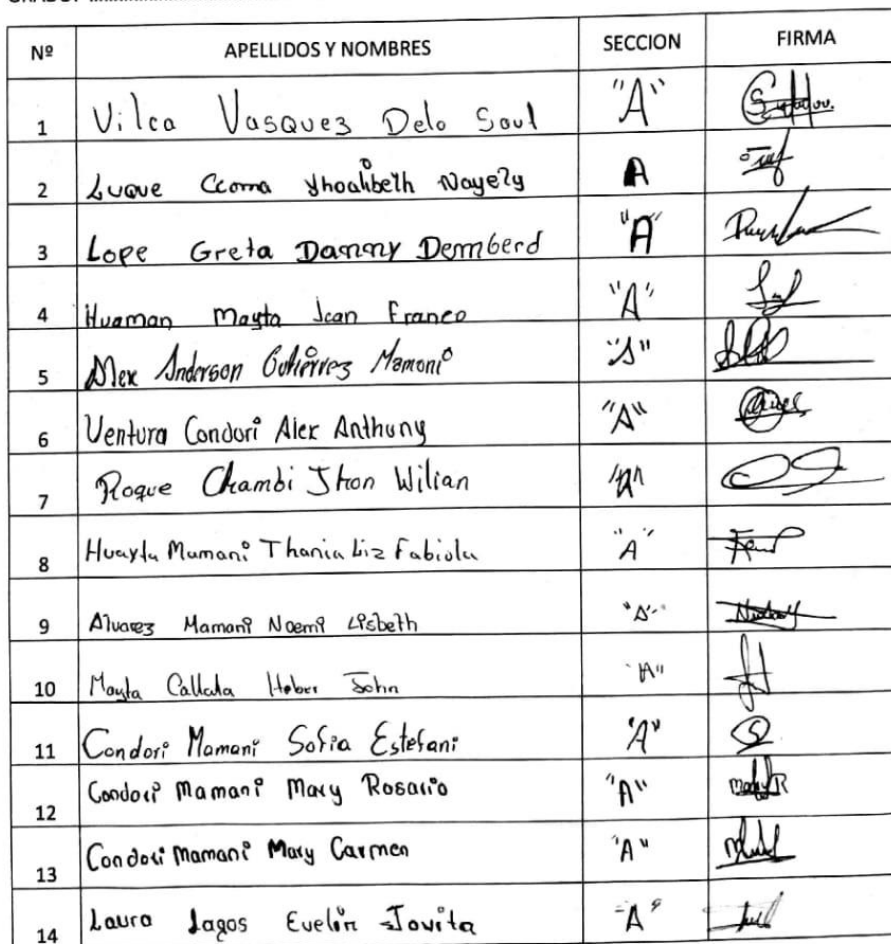 Nº APELLIDOS Y NOMBRES SECCION FIRMA
1 Vilca Vasquez Delo Saul "A"
2 Luque Ccoma Yhoalibeth Nayely A
3 Lope Greta Danny Demberd "A"
4 Huaman Mayta Jean Franco "A"
5 Alex Anderson Gutiérrez Mamani "A"
6 Ventura Condori Alex Anthony "A"
7 Roque Chambi Jhon Wilian "A"
8 Huayta Mamani Thania Liz Fabiola "A"
9 Alvarez Mamani Noemi Lisbeth "A"
10 Mayta Callata Heber John "A"
11 Condori Mamani Sofia Estefani "A"
12 Condori Mamani Mary Rosario "A"
13 Condori Mamani Mary Carmen "A"
14 Laura Lagos Evelin Jovita "A"